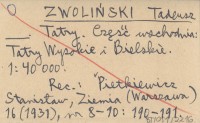 O
ZWOLIŃSKI Tadeusz
Tatry. Część wschodnia:
Tatry Wysokie i Bielskie.
1:40 000.
Rec.: Pietkiewicz
Stanisław, Ziemia (Warszawa)
16 (1931), nr 8-10: 190-191.